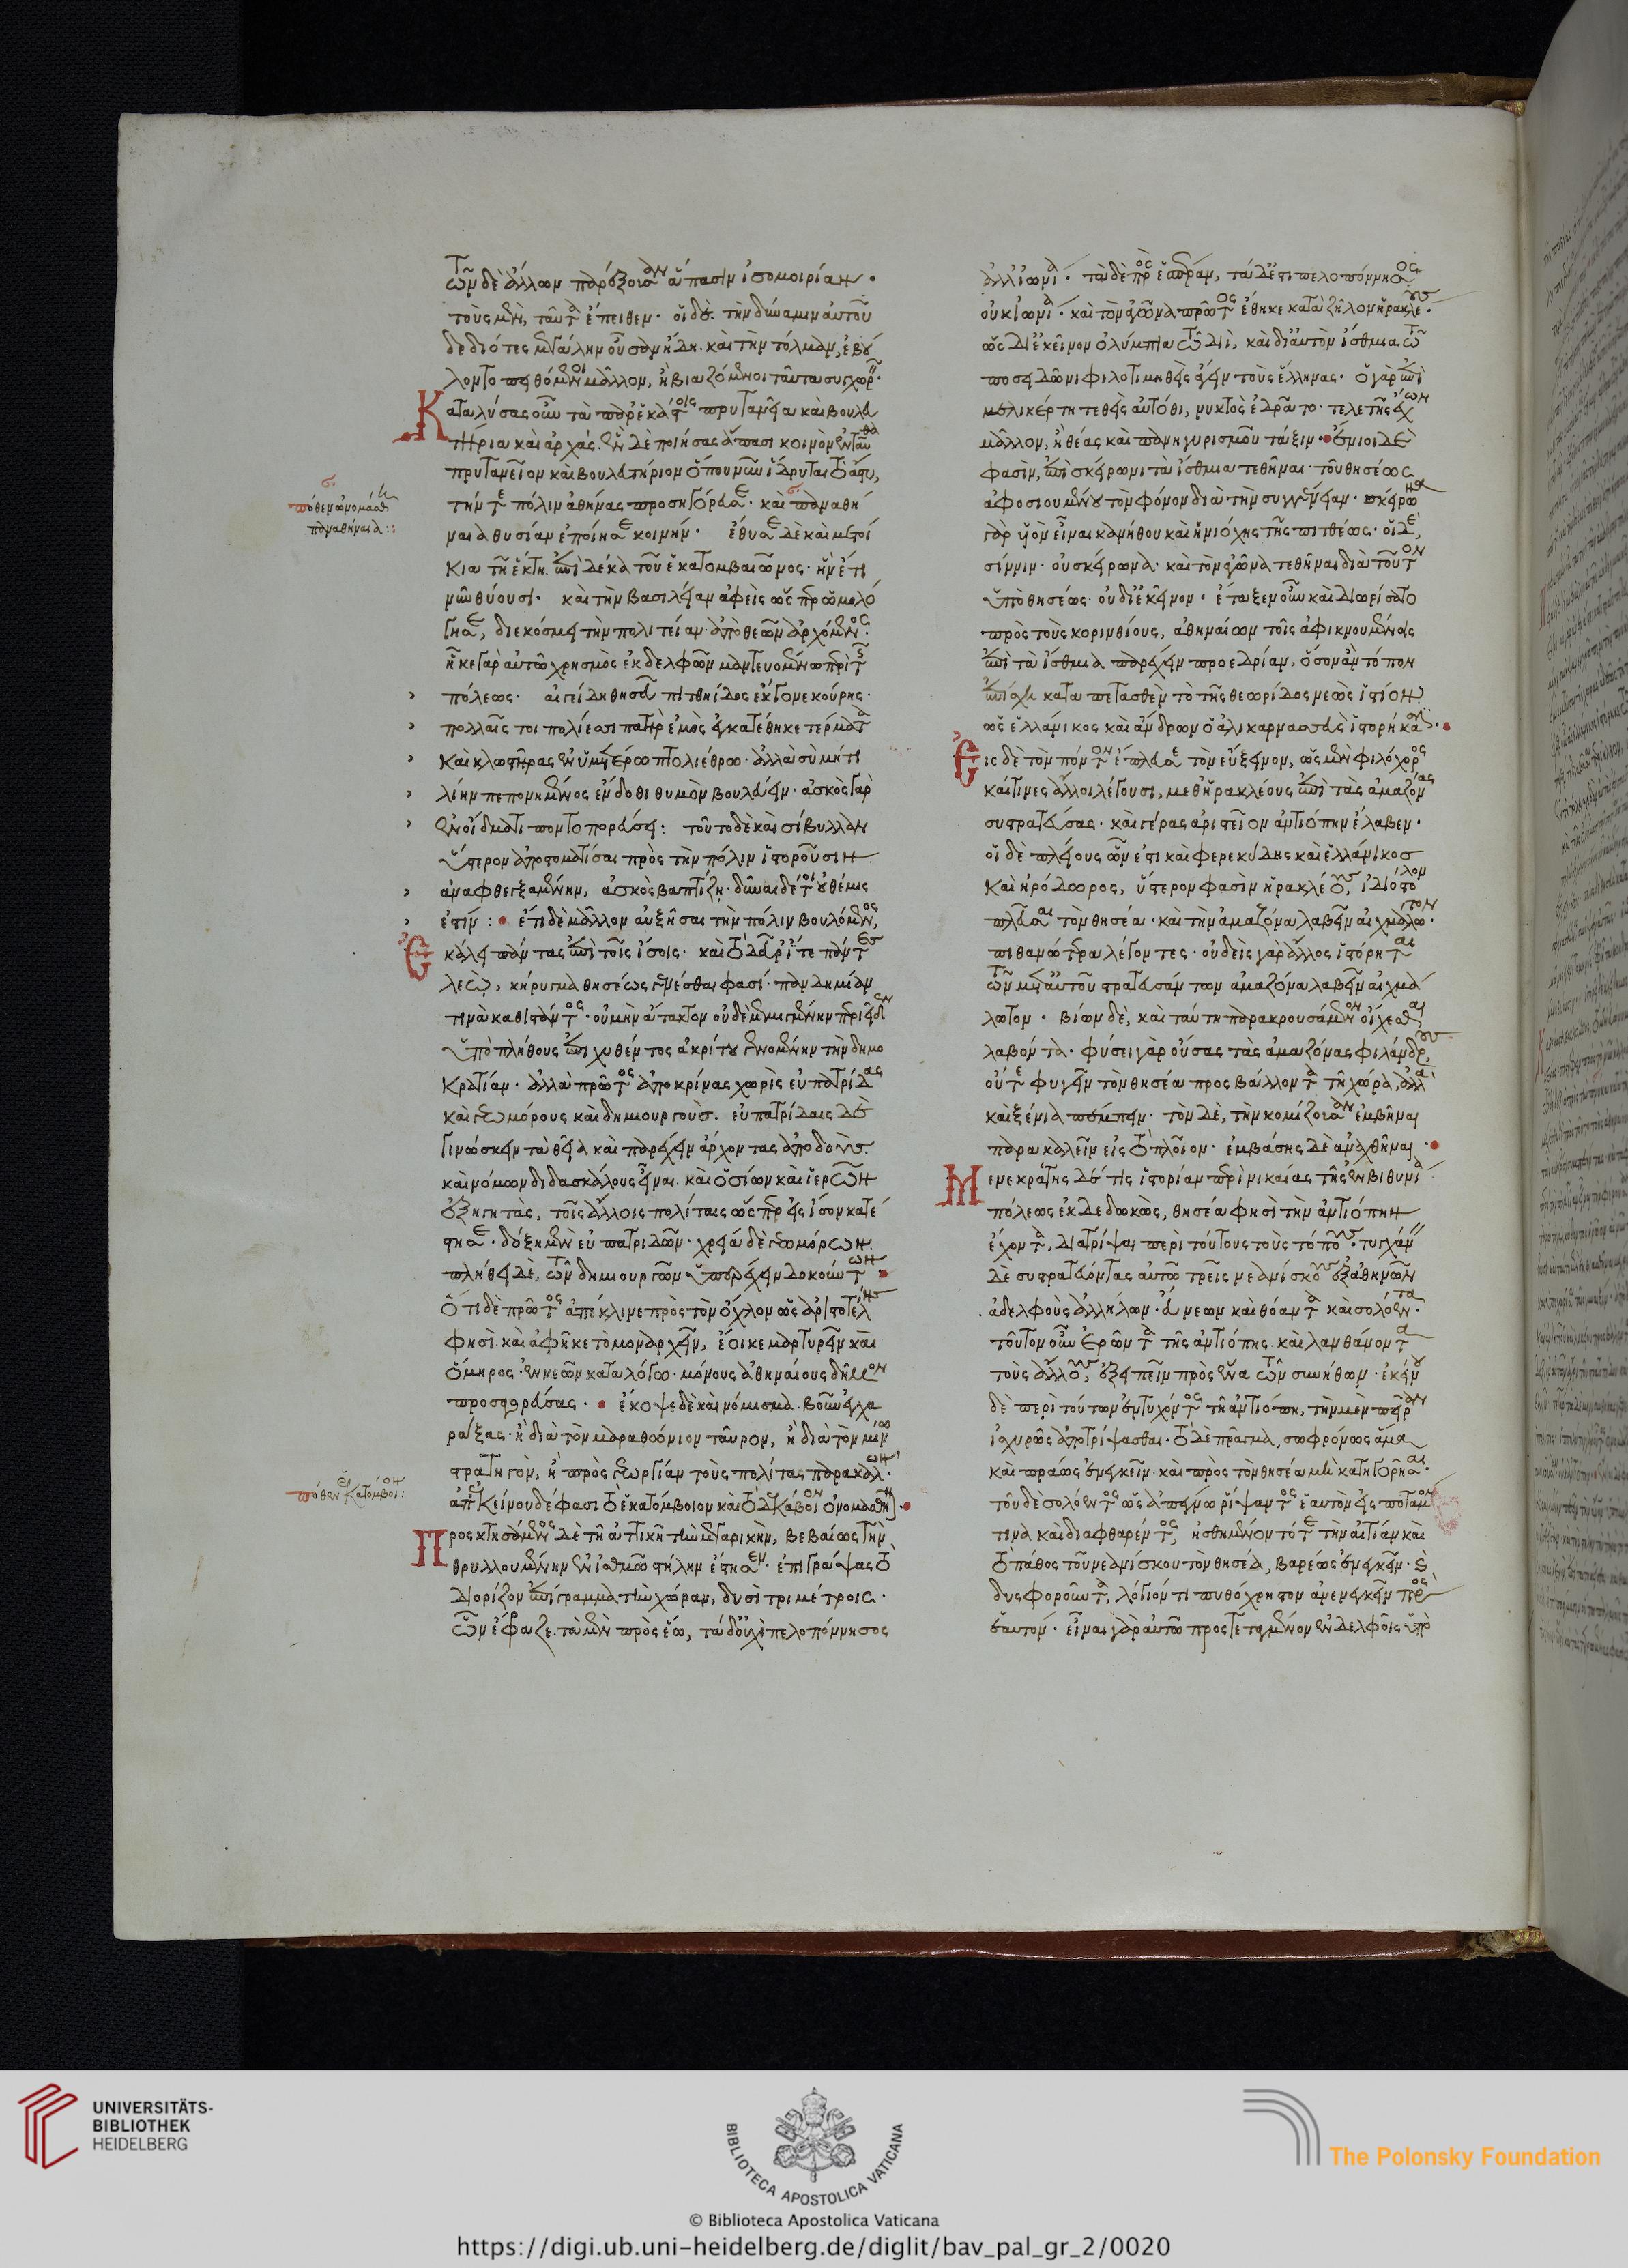 τῶν δὲ ἄλλων παρέξουσαν ἅπασιν ἰσομοιρίαν·
τοὺς μὲν, ταῦτα ἔπειθεν· οἱ δὲ τὴν δύναμιν αὐτοῦ
δεδιότες μεγάλην οὖσαν ἤδη. καὶ τὴν τόλμαν, ἐβού
λοντο πειθόμενοι μᾶλλον, ἢ βιαζόμενοι ταῦτα συγχωρεῖν·
Καταλύσας οὖν τὰ παρ' ἑκάστοις πρυτανεῖα καὶ βουλευ
τήρια καὶ ἀρχάς. ἓν δὲ ποιήσας ἅπασι κοινὸν ἐνταῦθα
πρυτανεῖον καὶ βουλευτήριον ὅπου νῦν ἵδρυται τὸ ἄστυ,
τήν τε πόλιν ἀθήνας προσηγόρευσε· καὶ παναθή
ναια θυσίαν ἐποίησε κοινήν· ἔθυσε δὲ καὶ μετοί
κια τῇ ἕκτῃ ἐπὶ δέκα τοῦ ἑκατομβαιῶνος· ἣν ἔτι
νῦν θύουσι· καὶ τὴν βασιλείαν ἀφεὶς ὥσπερ ὡμολό
γησε, διεκόσμει τὴν πολιτείαν· ἀπὸ θεῶν ἀρχόμενος·
ἧκε γὰρ αὐτῷ χρησμὸς ἐκ δελφῶν μαντευομένω περὶ τῆς
πόλεως· αἰγείδη θησεῦ πιτθηίδος ἔκγονε κούρης·
πολλαῖς τοι πολίεσσι πατὴρ ἐμὸς ἐγκατέθηκε τέρματα
καὶ κλωστῆρας ἐν ὑμετέρω πτολιέθρω· ἀλλὰ σὺ μήτι
λίην πεπονημένος ἔνδοθι θυμὸν βουλεύειν· ἀσκὸς γὰρ
ἐν οἴδματι ποντοπορεύσει: τοῦτο δὲ καὶ σίβυλλαν
ὕστερον ἀποστοματίσαι πρὸς τὴν πόλιν ἱστοροῦσιν.
ἀναφθεγξαμένην, ἀσκὸς βαπτίζῃ· δῦναι δέ τοι οὐ θέμις
ἐστίν: ἔτι δὲ μᾶλλον αὐξῆσαι τὴν πόλιν βουλόμενος,
Ἐκάλει πάντας ἐπὶ τοῖς ἴσοις· καὶ τὸ δεῦρ' ἴτε πάντες
λεῴ, κήρυγμα θησέως γενέσθαι φασί· πανδημίαν
τινὰ καθιστάντος· οὐ μὴν ἄτακτον οὐδὲ μεμιγμένην περιεῖδεν
ὑπὸ πλήθους ἐπιχυθέντος ἀκρίτου γενομένην τὴν δημο
κρατίαν· ἀλλὰ πρῶτος ἀποκρίνας χωρὶς εὐπατρίδας
καὶ γεωμόρους καὶ δημιουργούς. εὐπατρίδαις δὲ
γινώσκειν τὰ θεῖα καὶ παρέχειν ἄρχοντας ἀποδοὺς·
καὶ νόμων διδασκάλους εἶναι. καὶ ὁσίων καὶ ἱερῶν
ἐξηγητὰς, τοῖς ἄλλοις πολίταις ὥσπερ εἰς ἴσον κατέ
στησε· δόξῃ μὲν εὐπατριδῶν· χρείᾳ δὲ γεωμόρων.
πλήθει δὲ, τῶν δημιουργῶν ὑπερέχειν δοκούντων
Ὅτι δὲ πρῶτος ἀπέκλινε πρὸς τὸν ὄχλον ὡς ἀριστοτέλης
φησὶ. καὶ ἀφῆκε τὸ μοναρχεῖν, ἔοικε μαρτυρεῖν καὶ
ὅμηρος· ἐν νεῶν καταλόγω. μόνους ἀθηναίους δῆμον
προσαγορεύσας· ἔκοψε δὲ καὶ νόμισμα. βοῦν ἐγχα
ράξας· ἢ διὰ τὸν μαραθώνιον ταῦρον, ἢ διὰ τὸν μίνω
στρατηγὸν, ἢ πρὸς γεωργίαν τοὺς πολίτας παρακαλῶν·
ἀπ' ἐκείνου δέ φασι τὸ ἑκατόμβοιον καὶ τὸ δεκάβοιον ὀνομασθῆναι·
Προσκτησάμενος δὲ τῇ ἀττικῇ τὴν μεγαρικὴν, βεβαίως τὴν
θρυλλουμένην ἐν ἰσθμῷ στήλην ἔστησεν· ἐπιγράψας τὸ
διορίζον ἐπίγραμμα τὴν χώραν, δυσὶ τριμέτροις·
ὧν ἔφραζε. τὰ μὲν πρὸς ἕω, τάδ' οὐχὶ πελοπόννησος
πόθεν ὠνομάσθη
παναθήναια::
πόθεν ἑκατόμβοιον:
ἀλλ' ἰωνία· τὰ δὲ πρὸς ἑσπέραν, τάδ' ἐστὶ πελοπόννησος
οὐκ ἰωνία· καὶ τὸν ἀγῶνα πρῶτος ἔθηκε κατὰ ζῆλον ἡρακλέους·
ὡς δι' ἐκεῖνον ὀλύμπια τῷ διΐ, καὶ δι' αὐτὸν ἴσθμια τῷ
ποσειδῶνι φιλοτιμηθεὶς ἄγειν τοὺς ἕλληνας· ὁ γὰρ ἐπὶ
μελικέρτη τεθεὶς αὐτόθι, νυκτὸς ἐδρᾶτο· τελετῆς ἔχων
μᾶλλον, ἢ θέας καὶ πανηγυρισμοῦ τάξιν· ἔνιοι δὲ
φασὶν, ἐπὶ σκείρωνι τὰ ἴσθμια τεθῆναι· τοῦ θησέως
ἀφοσιουμένου τὸν φόνον διὰ τὴν συγγένειαν· σκείρωνα
γὰρ υἱὸν εἶναι κανήθου καὶ ἡνιόχης τῆς πιτθέως· οἱ δὲ,
σίννιν· οὐ σκείρωνα· καὶ τὸν ἀγῶνα τεθῆναι διὰ τοῦτον
ὑπὸ θησέως· οὐ δι' ἐκεῖνον· ἔταξεν οὖν καὶ διωρίσατο
πρὸς τοὺς κορινθίους, ἀθηναίων τοῖς ἀφικνουμένοις
ἐπὶ τὰ ἴσθμια παρέχειν προεδρίαν, ὅσον ἂν τόπον
ἐπίσχῃ καταπετασθὲν τὸ τῆς θεωρίδος νεὼς ἱστίον·
ὡς ἑλλάνικος καὶ ἄνδρων ὁ ἁλικαρνασσεὺς ἱστορήκασιν·
Εἰς δὲ τὸν πόντον ἔπλευσε τὸν εὔξεινον, ὡς μὲν φιλόχορος
καί τινες ἄλλοι λέγουσι, μεθ' ἡρακλέους ἐπὶ τὰς ἀμαζόνας
συστρατεύσας· καὶ γέρας ἀριστεῖον ἀντιόπην ἔλαβεν·
οἱ δὲ πλείους ὧν ἐστι καὶ φερεκύδης καὶ ἑλλάνικος
καὶ ἡρόδωρος, ὕστερόν φασιν ἡρακλέους, ἰδιόστολον
πλεῦσαι τὸν θησέα· καὶ τὴν ἀμαζόνα λαβεῖν αἰχμάλωτον·
πιθανώτερα λέγοντες· οὐδεὶς γὰρ ἄλλος ἱστόρηται
τῶν μετ' αὐτοῦ στρατευσάντων ἀμαζόνα λαβεῖν αἰχμά
λωτον· βίων δὲ, καὶ ταύτην παρακρουσάμενον οἴχεσθαι
λαβόντα· φύσει γὰρ οὔσας τὰς ἀμαζόνας φιλάνδρους,
οὔτε φυγεῖν τὸν θησέα προσβάλλοντα τῇ χώρᾳ, ἀλλὰ
καὶ ξένια πέμπειν· τὸν δὲ, τὴν κομίζουσαν ἐμβῆναι
παρακαλεῖν εἰς τὸ πλοῖον· ἐμβάσης δὲ ἀναχθῆναι·
Μενεκράτης δέ τις ἱστορίαν περὶ νικαίας τῆς ἐν βιθυνίᾳ
πόλεως ἐκδεδωκὼς, θησέα φησὶ τὴν ἀντιόπην
ἔχοντα, διατρίψαι περὶ τούτους τοὺς τόπους· τυγχάνειν
δὲ συστρατεύοντας αὐτῷ τρεῖς νεανίσκους ἐξ ἀθηνῶν
ἀδελφοὺς ἀλλήλων· εὔνεων καὶ θόαντα καὶ σολόεντα·
τοῦτον οὖν ἐρῶντα τῆς ἀντιόπης· καὶ λανθάνοντα
τοὺς ἄλλους, ἐξειπεῖν πρὸς ἕνα τῶν συνήθων· ἐκείνου
δὲ περὶ τούτων ἐντυχόντος τῇ ἀντιόπῃ, τὴν μὲν πεῖραν
ἰσχυρῶς ἀποτρίψασθαι· τὸ δὲ πρᾶγμα, σωφρόνως ἅμα
καὶ πράως ἐνεγκεῖν· καὶ πρὸς τὸν θησέα μὴ κατηγορῆσαι·
τοῦ δὲ σολόεντος ὡς ἀπέγνω ῥίψαντος ἑαυτὸν εἰς ποταμόν
τινα καὶ διαφθαρέντος, ᾐσθημένον τότε τὴν αἰτίαν καὶ
τὸ πάθος τοῦ νεανίσκου τὸν θησέα, βαρέως ἐνεγκεῖν· καὶ
δυσφοροῦντα, λόγιόν τι πυθόχρηστον ἀνενεγκεῖν πρὸς
ἑαυτόν· εἶναι γὰρ αὐτῷ προστεταγμένον ἐν δελφοῖς ὑπὸ
UNIVERSITÄTS-
BIBLIOTHEK
HEIDELBERG
BIBLIOTECA APOSTOLICA VATICANA
The Polonsky Foundation
© Biblioteca Apostolica Vaticana
https://digi.ub.uni-heidelberg.de/diglit/bav_pal_gr_2/0020